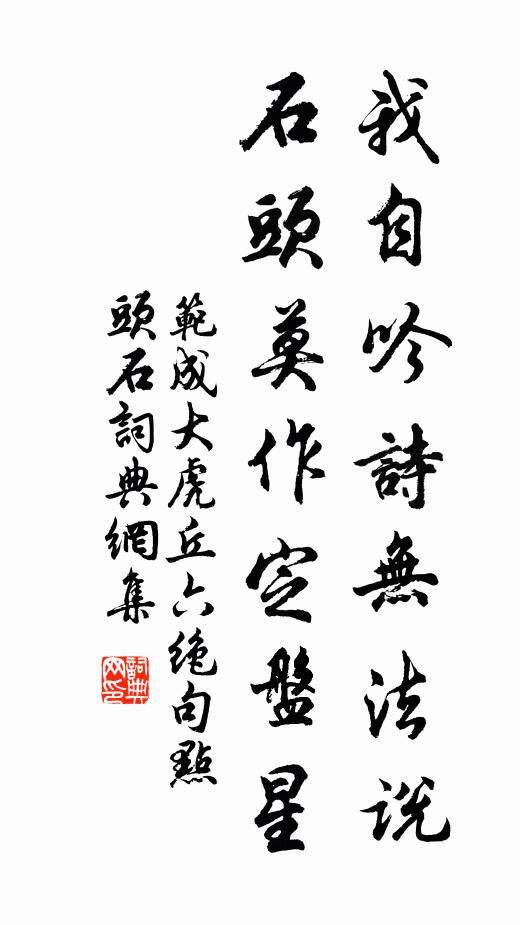 我自吟詩無法説
石頭莫作定盤星
範成大虎丘六绝句點
頭石詞典網集
詞典网印